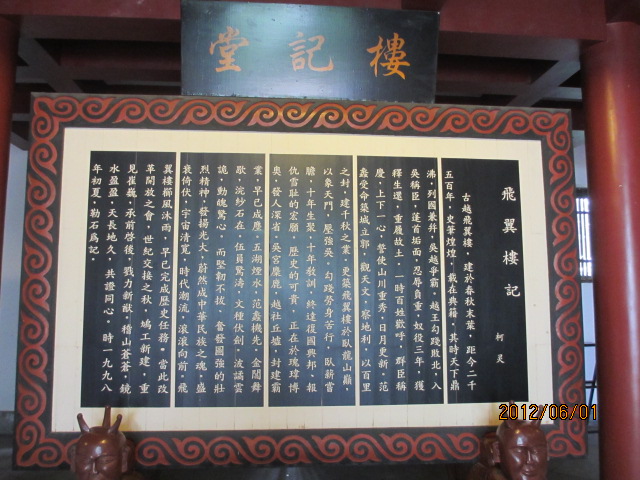 樓記堂
飛翼樓記
柯灵
古越飛翼樓，建於春秋末葉，距今二千
五百年，史筆煌煌，載在典籍。其時天下鼎
沸，列國兼并，吳越爭霸，越王勾踐敗北，入
吳稱臣，蓬首垢面，忍辱負重，奴役三年，獲
釋生還，重履故土。一時百姓歡呼，群臣稱
慶，上下一心，誓使山川重秀，日月更新。范
蠡受命築城立郭，觀天文，察地利，以百里
之封，建千秋之業。更築飛翼樓於臥龍山巔，
以象天門，壓強吳。勾踐勞身苦行，臥薪嘗
膽，十年生聚，十年教訓，終達復國興邦，報
仇雪耻的宏願。歷史的可貴，正在於瑰瑋博
奥，發人深省。吳宮麋鹿，越社丘墟，封建霸
業，早已成塵，五湖煙水，范蠡機先，金闔舞
歇，浣紗石在，伍員驚濤，文種伏劍，波譎雲
詭，動魄驚心。而堅韌不拔，奮發圖強的壯
烈精神，發揚光大，蔚然成中華民族之魂。盛
衰倚伏，宇宙清寬，時代潮流，滾滾向前，飛
翼樓櫛風沐雨，早已完成歷史任務。當此改
革開放之會，世紀交接之秋，鳩工新建，重
見崔巍，承前啓後，戮力新猷。稽山蒼蒼，鏡
水盈盈，天長地久，共證同心。時一九九八
年初夏，勒石爲記。
2012/06/01